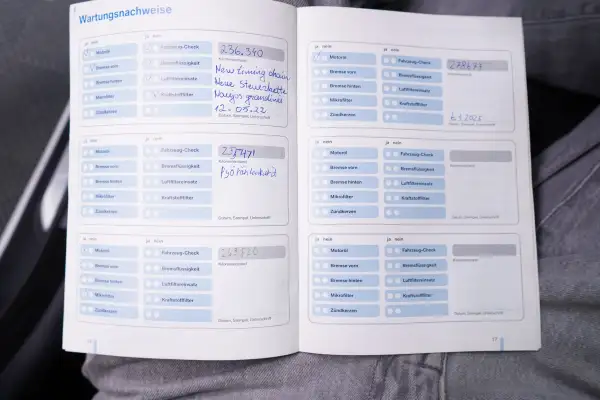 Wartungsnachweise
ja nein ja nein
Motoröl Fahrzeug-Check 236.340
Bremse vorn Bremsflüssigkeit New timing chain
Bremse hinten Luftfiltereinsatz Neue Steuerkette
Mikrofilter Kraftstofffilter
Zündkerzen 12.05.22
Datum, Stempel, Unterschrift
ja nein ja nein
Motoröl Fahrzeug-Check
Bremse vorn Bremsflüssigkeit
Bremse hinten Luftfiltereinsatz
Mikrofilter Kraftstofffilter
Zündkerzen
Datum, Stempel, Unterschrift
ja nein ja nein
Motoröl Fahrzeug-Check
Bremse vorn Bremsflüssigkeit
Bremse hinten Luftfiltereinsatz
Mikrofilter Kraftstofffilter
Zündkerzen
Datum, Stempel, Unterschrift
ja nein ja nein
Motoröl Fahrzeug-Check
Bremse vorn Bremsflüssigkeit
Bremse hinten Luftfiltereinsatz
Mikrofilter Kraftstofffilter
Zündkerzen
Datum, Stempel, Unterschrift
ja nein ja nein
Motoröl Fahrzeug-Check
Bremse vorn Bremsflüssigkeit
Bremse hinten Luftfiltereinsatz
Mikrofilter Kraftstofffilter
Zündkerzen
Datum, Stempel, Unterschrift
ja nein ja nein
Motoröl Fahrzeug-Check
Bremse vorn Bremsflüssigkeit
Bremse hinten Luftfiltereinsatz
Mikrofilter Kraftstofffilter
Zündkerzen
Datum, Stempel, Unterschrift
17